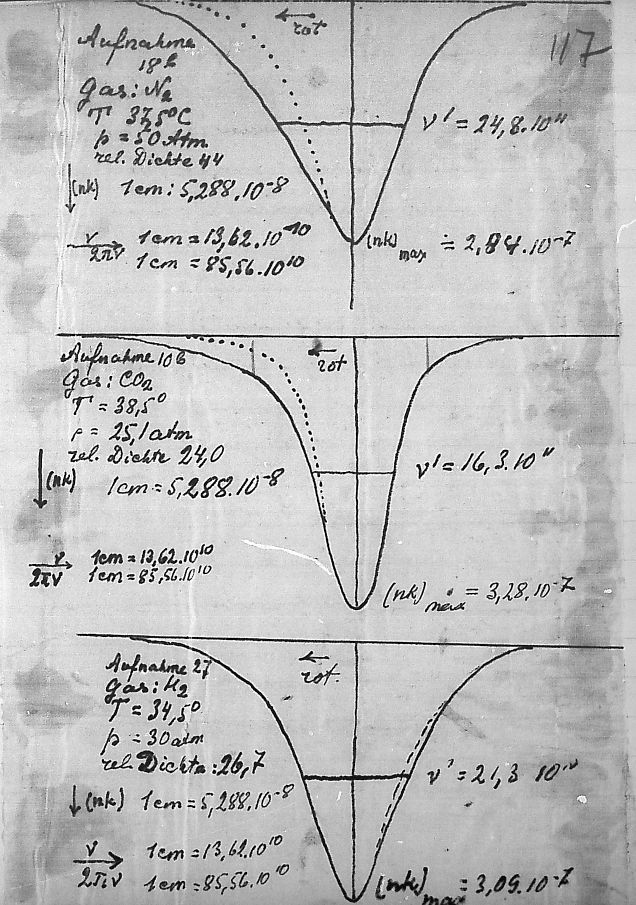 117
← rot
Aufnahme
18b
Gas: N₂
T 37,5°C
p = 50 Atm
rel. Dichte 44
↓ (nk) 1cm: 5,288.10⁻⁸
ν → 1cm = 13,62.10¹⁰
2πν 1cm = 85,56.10¹⁰
ν' = 24,8.10¹¹
(nk)max = 2,84.10⁻⁷
← rot
Aufnahme 10b
Gas: CO₂
T = 38,5°
p = 25,1 atm
rel. Dichte 24,0
↓ (nk) 1cm = 5,288.10⁻⁸
ν' = 16,3.10¹¹
ν → 1cm = 13,62.10¹⁰
2πν 1cm = 85,56.10¹⁰
(nk)max = 3,28.10⁻⁷
← rot.
Aufnahme 27
Gas: H₂
T = 34,5°
p = 30 atm
rel. Dichte: 26,7
ν' = 21,3 10¹¹
↓ (nk) 1cm = 5,288.10⁻⁸
ν → 1cm = 13,62.10¹⁰
2πν 1cm = 85,56.10¹⁰
(nk)max = 3,09.10⁻⁷